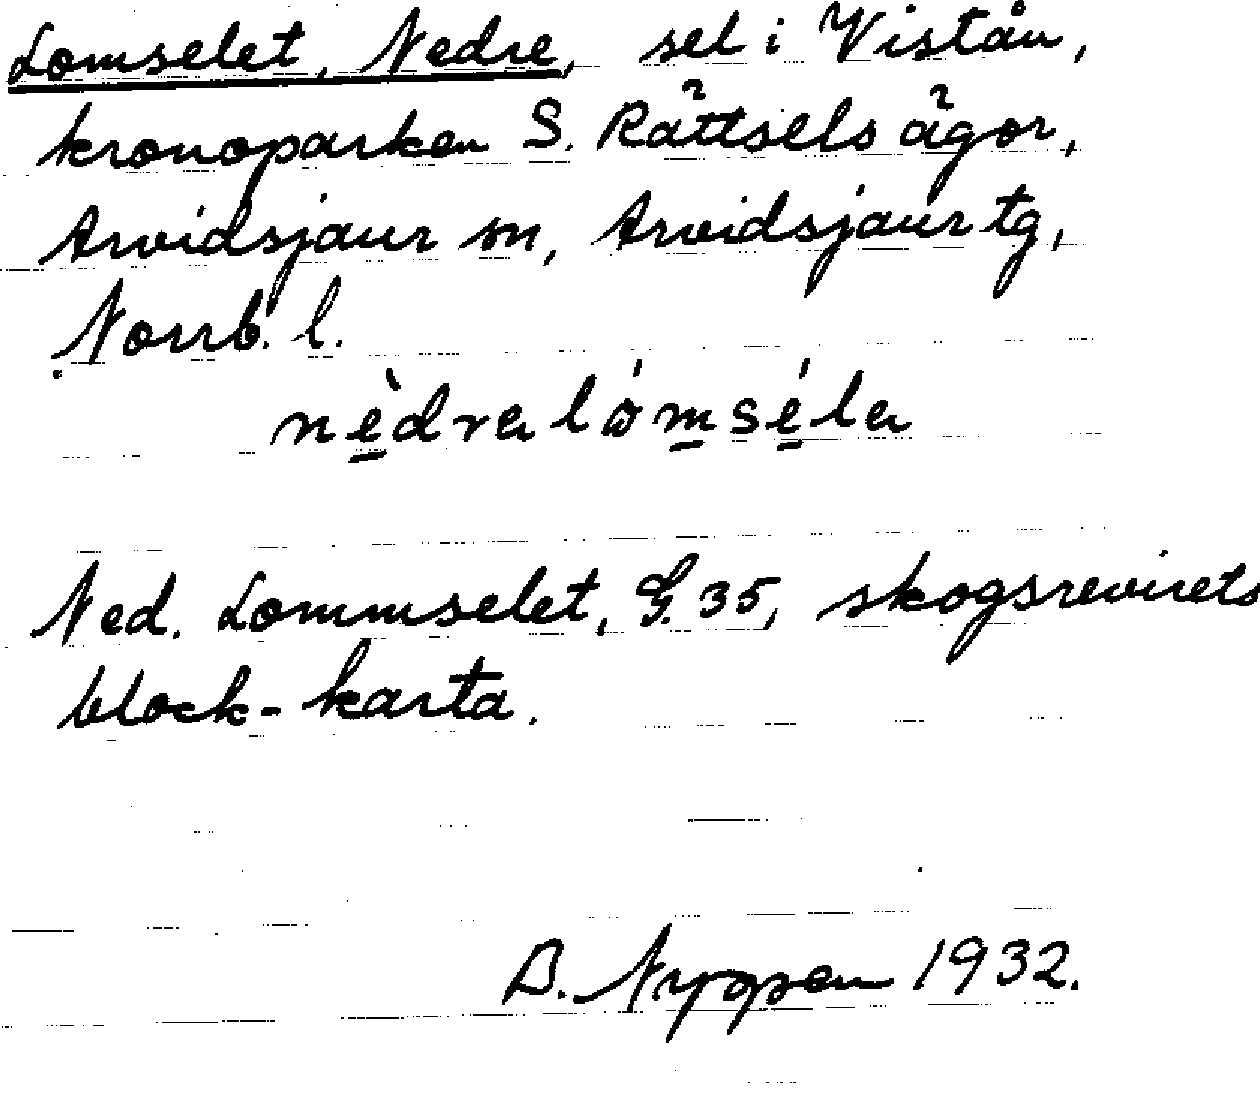 Lomselet, Nedre, sel i Viståu,
kronoparken S. Rättsels ägor,
Arvidsjaur sn, Arvidsjaur tg,
Norrb. l.
nèdra lómséla
Ned. Lommselet, G. 35, skogsrevirets
block-karta.
B. 1932.